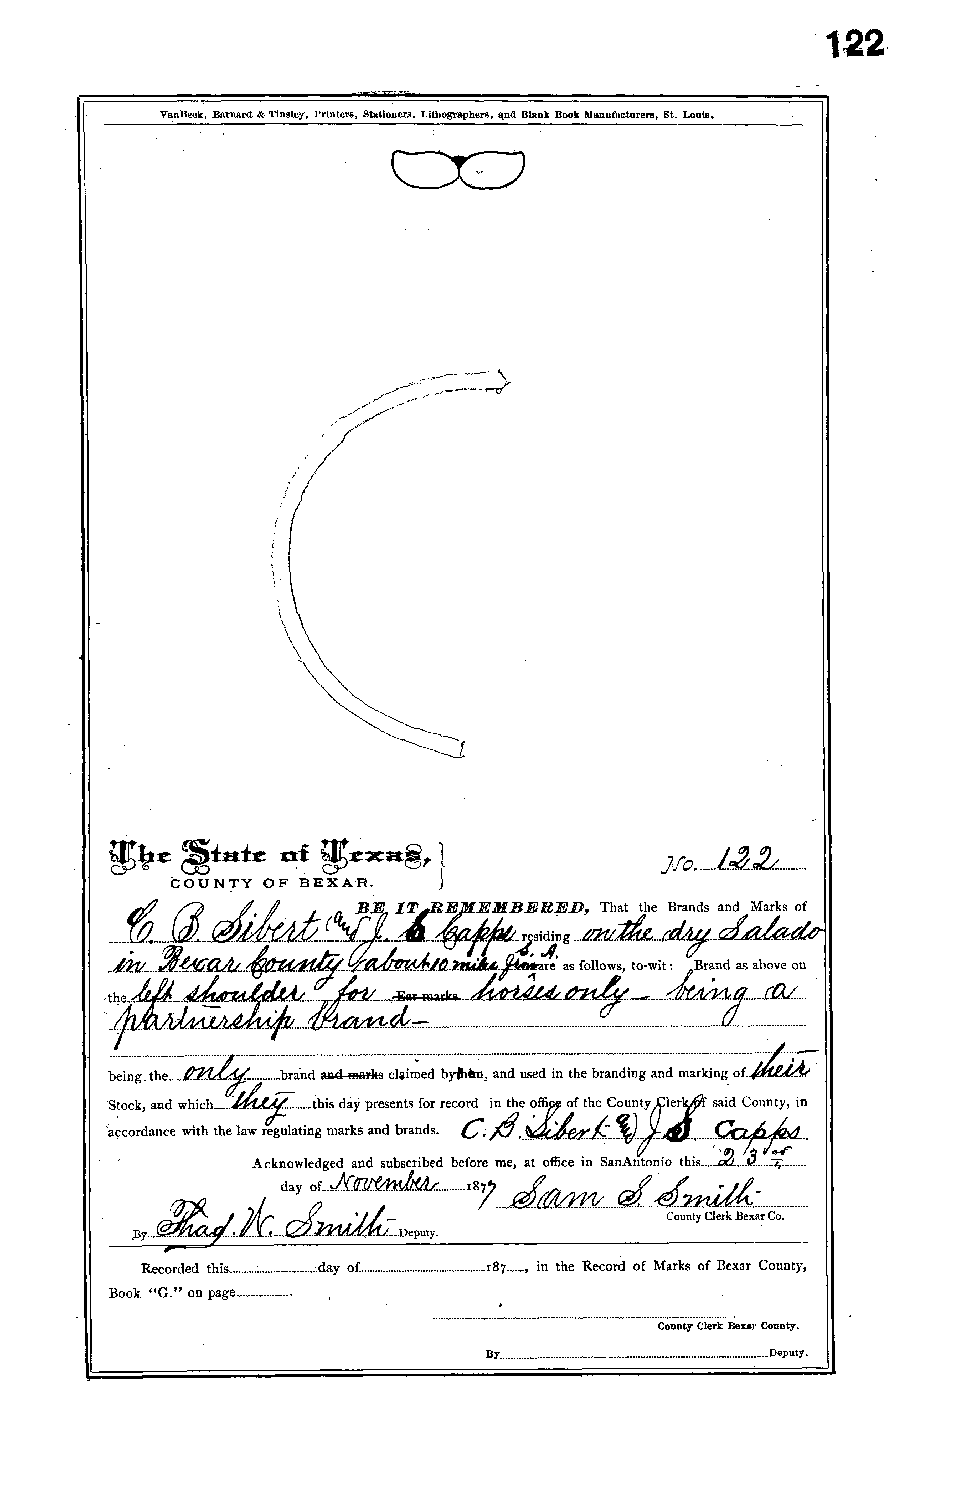 122
VanBeek, Barnard & Tinsley, Printers, Stationers, Lithographers, and Blank Book Manufacturers, St. Louis.
The State of Texas,
COUNTY OF BEXAR.
No. 122
BE IT REMEMBERED, That the Brands and Marks of
C. B. Sibert and J. S Capps residing on the dry Salado
in Bexar County about 10 miles from S. A. are as follows, to-wit: Brand as above on
the left shoulder for Ear marks horses only - being a
partnership brand -
being the only brand and marks claimed by them, and used in the branding and marking of their
Stock, and which they this day presents for record in the office of the County Clerk of said County, in
accordance with the law regulating marks and brands. C. B. Sibert & J S Capps
Acknowledged and subscribed before me, at office in SanAntonio this 23rd
day of November 1877 Sam S Smith
County Clerk Bexar Co.
By Thad. W. Smith Deputy.
Recorded this day of 187 , in the Record of Marks of Bexar County,
Book "G." on page
County Clerk Bexar County.
By Deputy.